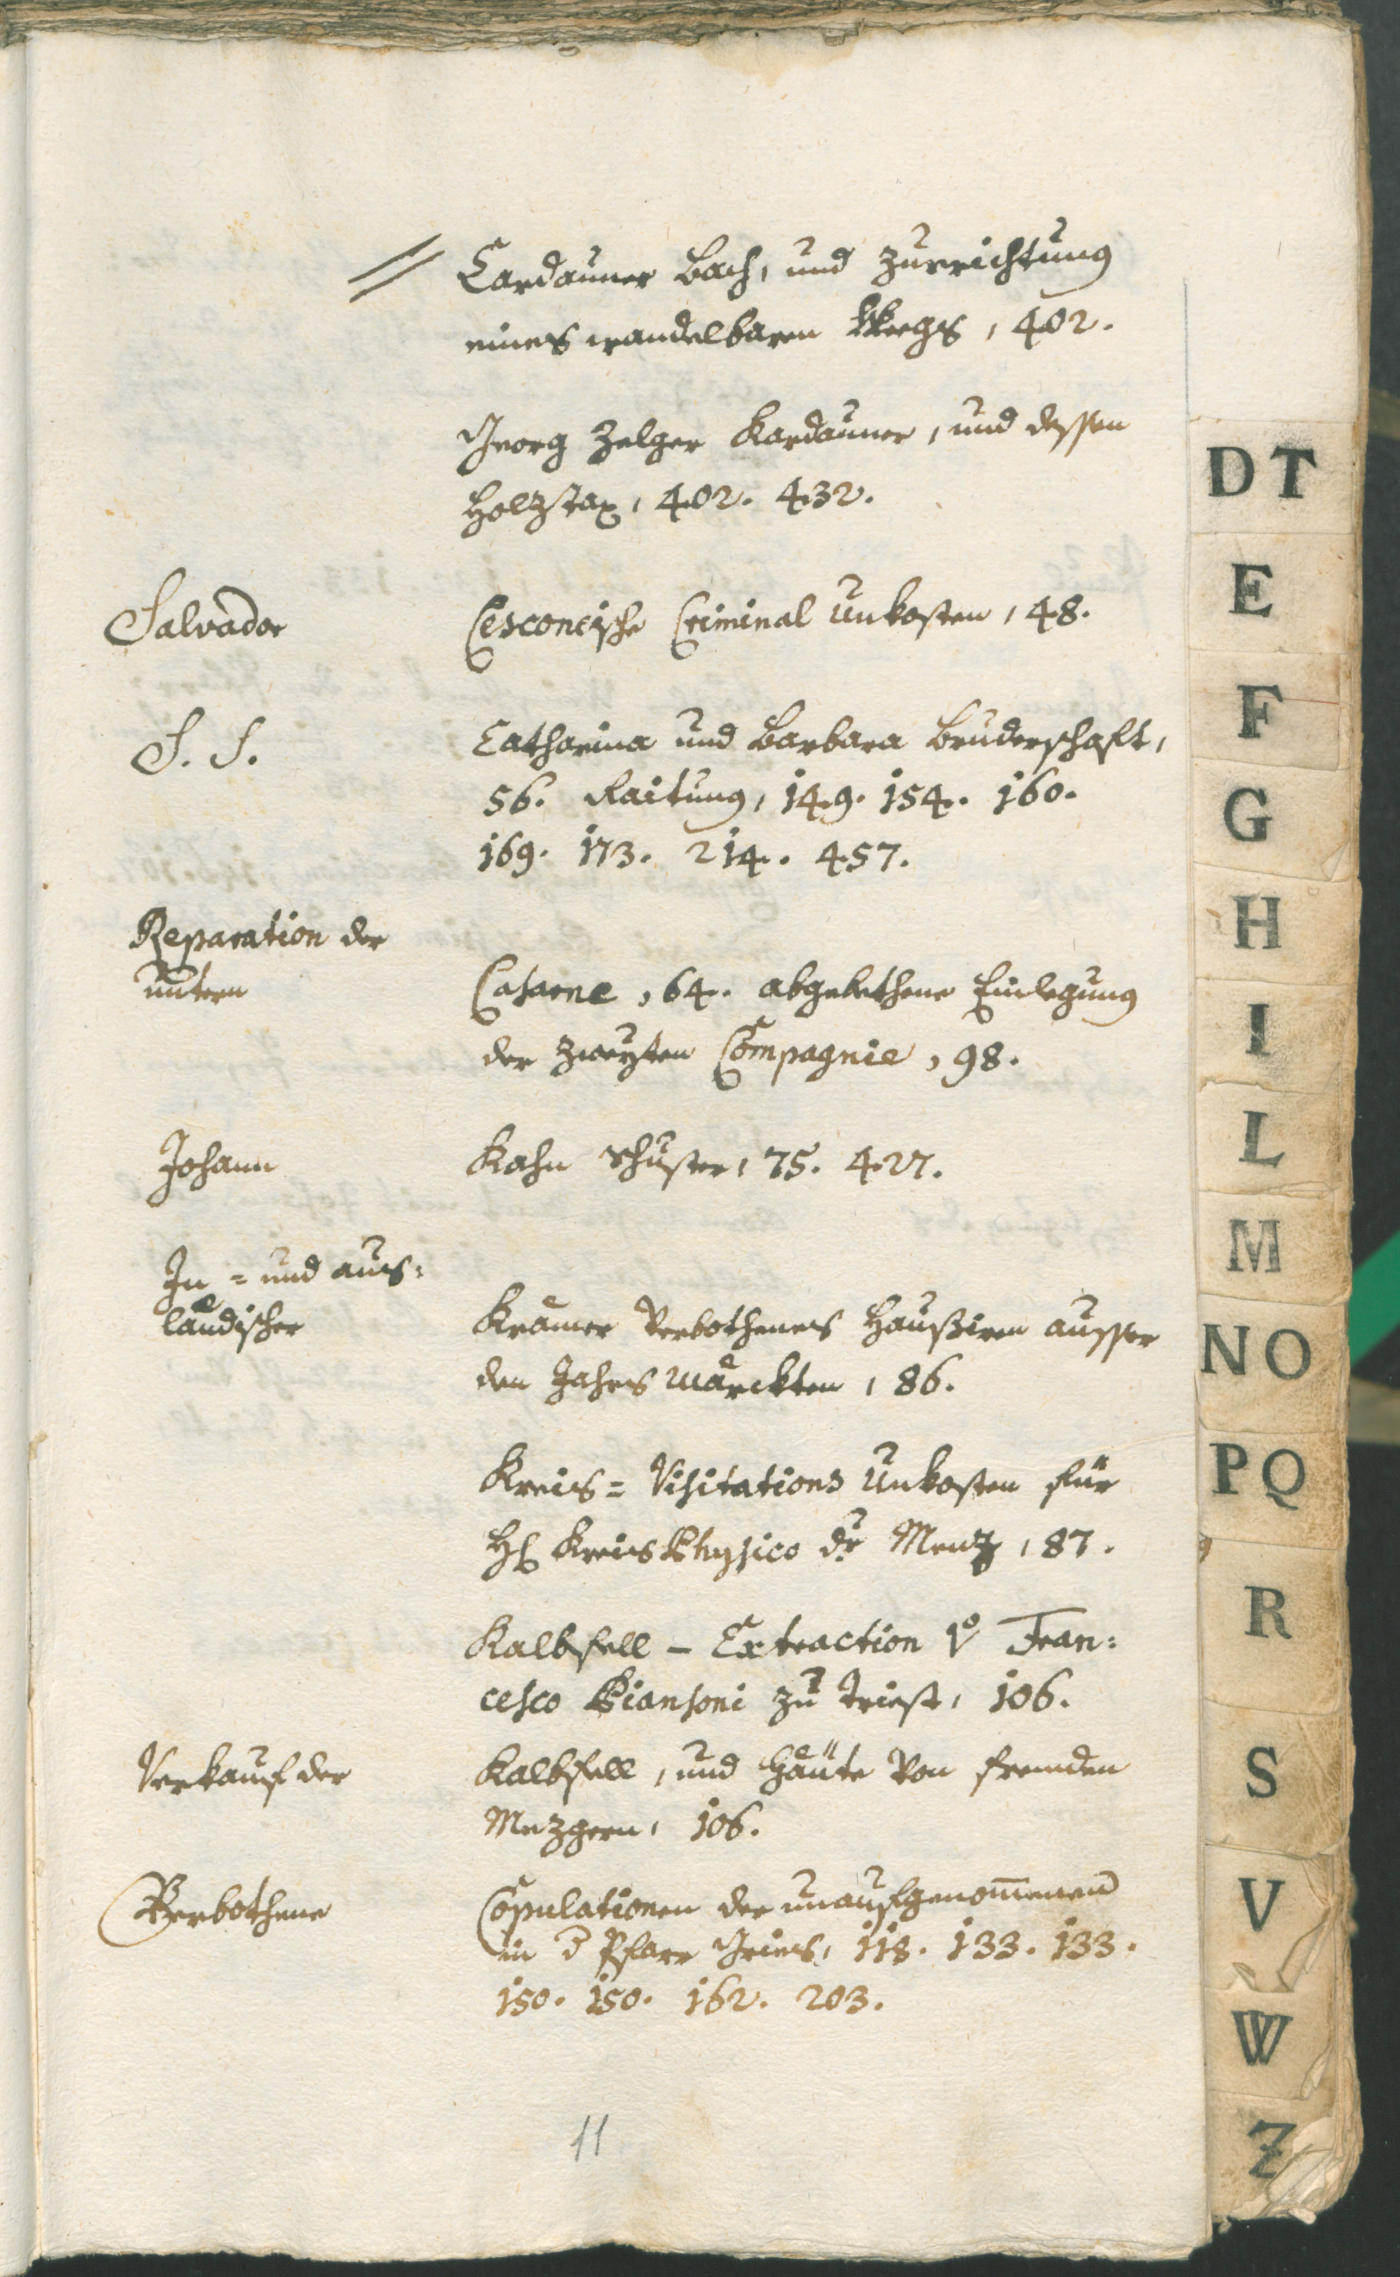 // Cardauner Bach, und Zurrichtung
eines wandelbaren Weegs, 402.
Georg Zelger Kardauner, und dessen
Holztax, 402. 432.
Salvador Cesconeische Criminal Unkosten, 48.
S. S. Catharina und Barbara Bruderschaft,
56. Raitung, 149. 154. 160.
169. 173. 214. 457.
Reparation der
untern Casarne, 64. abgebethene Einlegung
der zweyten Compagnie, 98.
Johann Kahn Schuster, 75. 427.
In = und aus:
ländischer Krämer verbothenes Haußiren ausser
den Jahrsmärckten, 86.
Kreis = Visitations Unkosten für
H. Kreis Physico Dr Menz, 87.
Kalbsfell - Extraction Fran:
cesco Biansoni zu Triest, 106.
Verkauf der Kalbsfell, und Häute von fremden
Mezgern, 106.
Verbothene Copulationen der unaufgenommenen
in d Pfarr Gries, 118. 133. 133.
150. 150. 162. 203.
11
D T
E
F
G
H
I
L
M
N O
P Q
R
S
V
W
Z